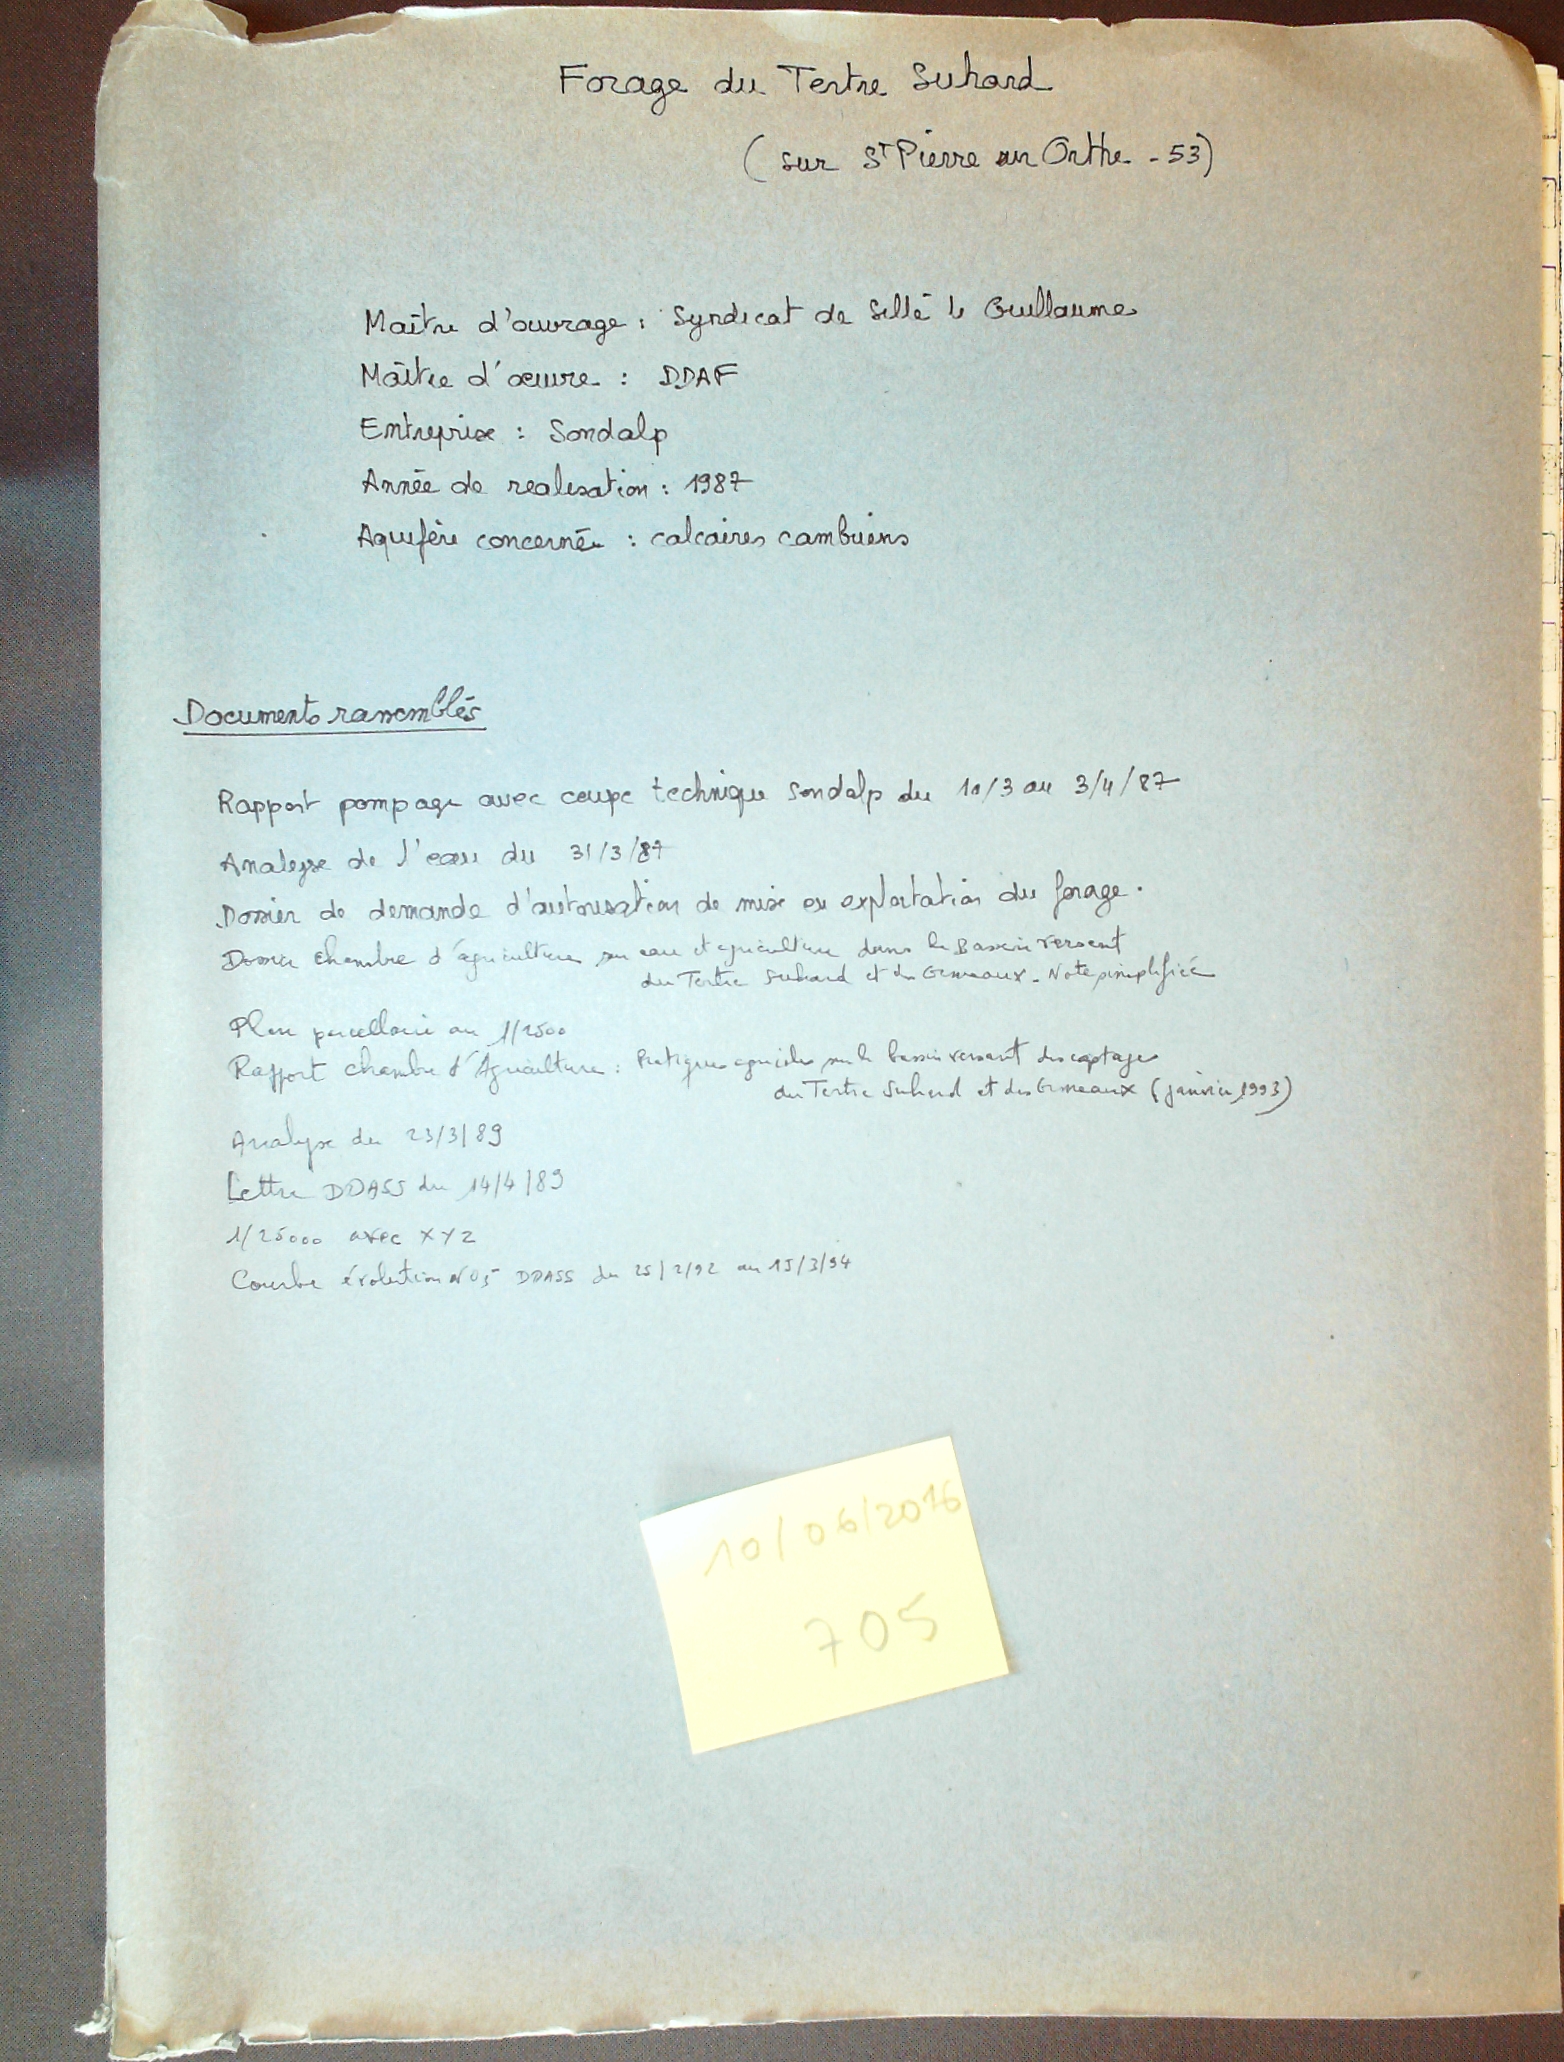 Forage du Tertre Suhard
(sur St Pierre sur Orthe - 53)
Maître d'ouvrage : Syndicat de Sillé le Guillaume
Maître d'oeuvre : DDAF
Entreprise : Sondalp
Année de réalisation : 1987
Aquifère concerné : calcaires cambriens
Documents rassemblés
Rapport pompage avec coupe technique Sondalp du 10/3 au 3/4/87
Analyse de l'eau du 31/3/87
Dossier de demande d'autorisation de mise en exploitation du forage.
Dossier chambre d'agriculture sur eau et agriculture dans le Bassin versant
du Tertre Suhard et des Ormeaux - Note simplifiée
Plan parcellaire au 1/2500
Rapport chambre d'Agriculture : Pratiques agricoles sur le bassin versant des captages
du Tertre Suhard et des Ormeaux (janvier 1993)
Analyse du 23/3/89
Lettre DDASS du 14/4/89
1/25000 avec XYZ
Courbe évolution NO3- DDASS du 25/2/92 au 15/3/94
10/06/2016
705